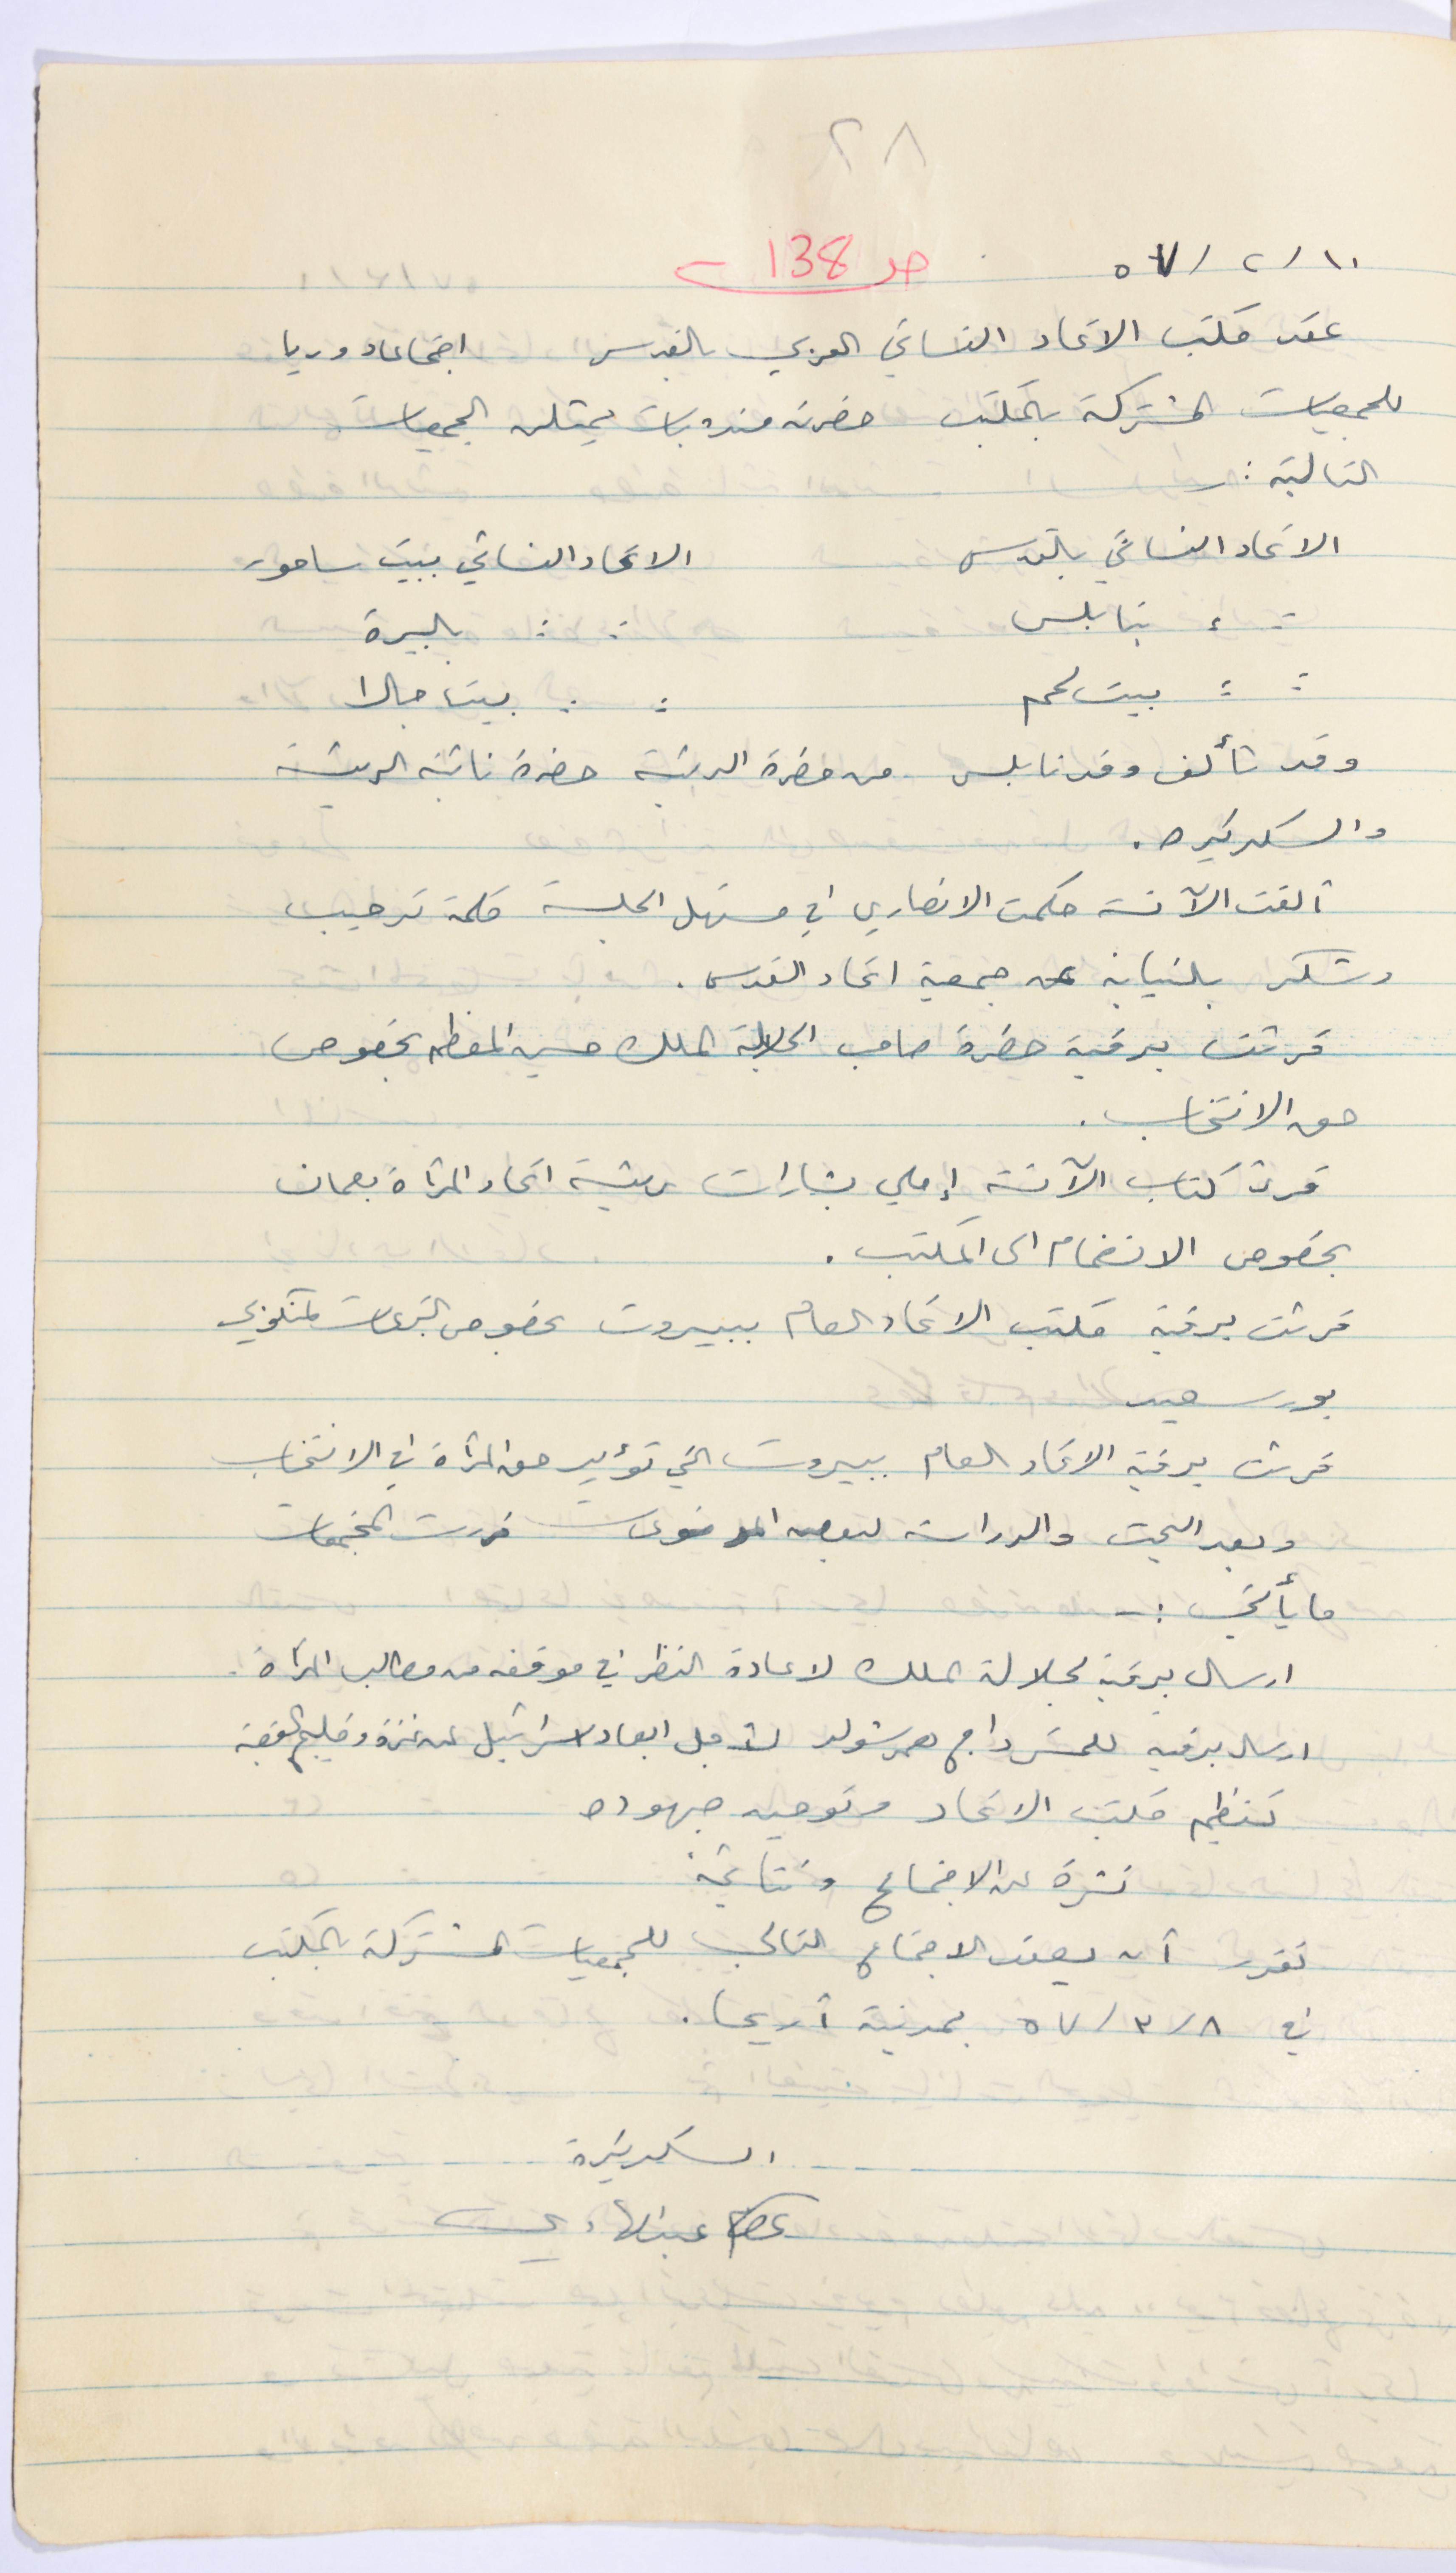 ٢٨
١٠/٢/٥٧
صـ 138
عقد مكتب الاتحاد النسائي العربي بالقدس اجتماعا دوريا
للجمعيات المشتركة بالمكتب حضرته مندوبات يمثلن الجمعيات
التالية :
الاتحاد النسائي بالقدس الاتحاد النسائي ببيت ساحور
= = بنابلس = = بالبيرة
= = بيت لحم = = بيت جالا
وقد تألف وفد نابلس من حضرة الرئيسة حضرة نائبة الرئيسة
والسكرتيره .
ألقت الآنسة حكمت الانصاري في مستهل الجلسة كلمة ترحيب
وشكر بالنيابة عن جمعية اتحاد القدس .
قرئت برقية حضرة صاحب الجلالة الملك حسين المعظم بخصوص
حق الانتخاب .
قرئ كتاب الآنسة إملي بشارات رئيسة اتحاد المرأة بعمان
بخصوص الانضمام الى المكتب .
قرئت برقية مكتب الاتحاد العام ببيروت بخصوص التبرعات لمنكوبي
بور سعيد
قرئت برقية الاتحاد العام ببيروت التي تؤيد حق المرأة في الانتخاب
وبعد البحث والدراسة لبعض الموضوعات قررت المجتمعات
ما يأتي : -
ارسال برقية لجلالة الملك لاعادة النظر في موقفه من مطالب المرأة .
ارسال برقيه للمستر داج همرشولد لأجل ابعاد اسرائيل عن غزة وخليج العقبة
تنظيم مكتب الاتحاد وتوحيد جهوده
نشرة عن الاجتماع ونتائجه
تقرر أن يعقد الاجتماع التالي للجمعيات المشتركة بالمكتب
في ٨/٣/٥٧ بمدينة أريحا .
السكرتيرة
عصام عبد الهادي